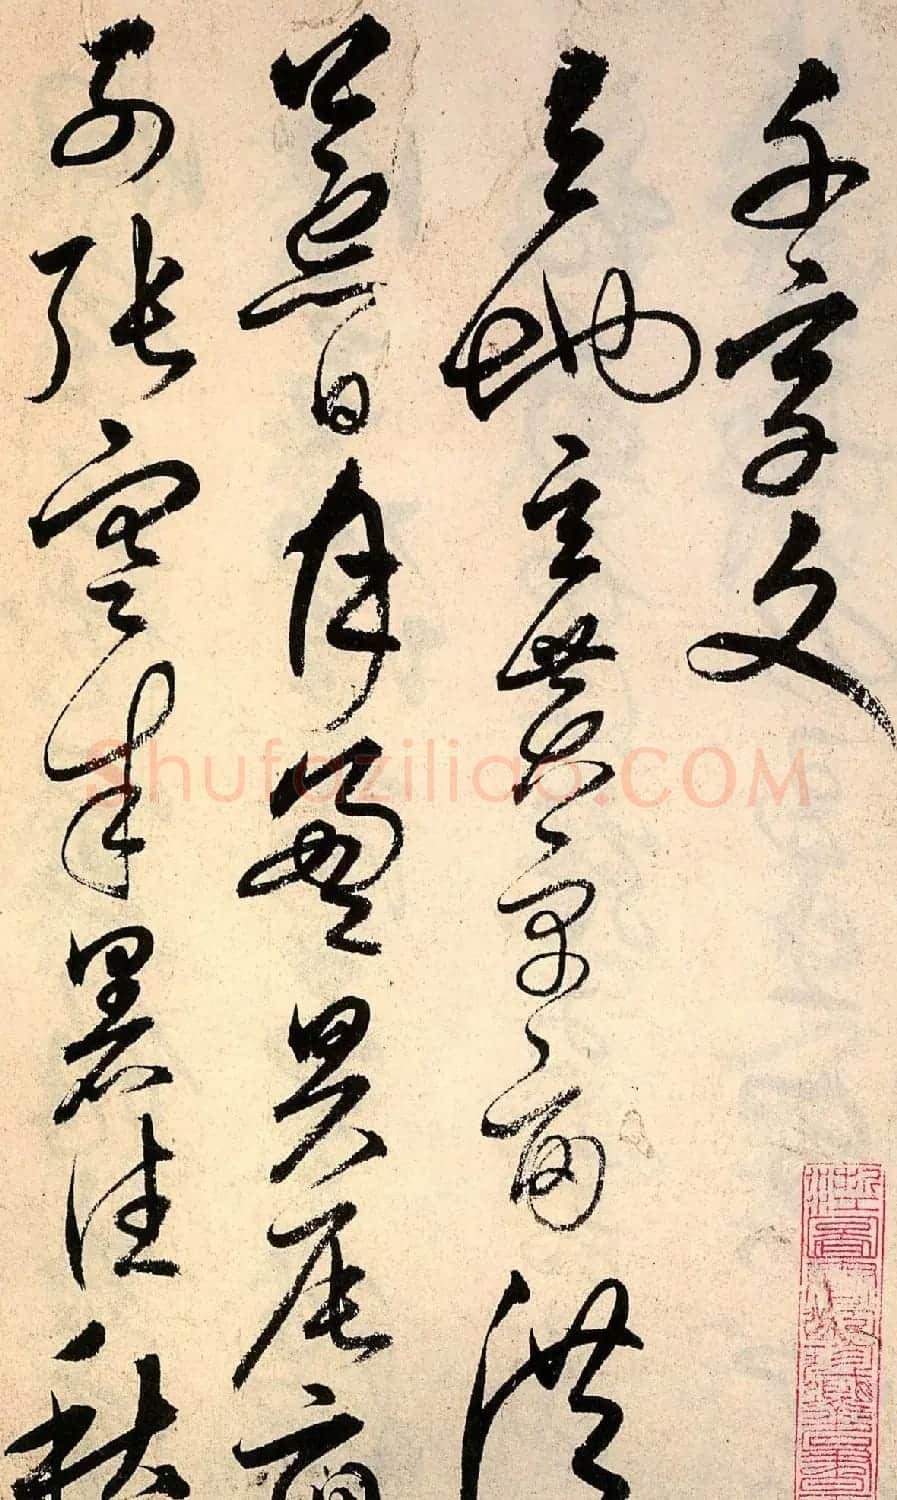 千字文
天地玄黄宇宙洪
荒日月盈昃辰宿
列张寒来暑往秋
Shufaziliao.COM